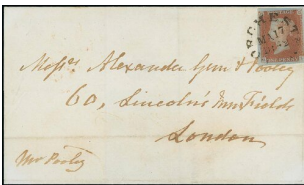 Messrs. Alexander Gunn & Pooley
60, Lincoln's Inn Fields
London
Mr Pooley